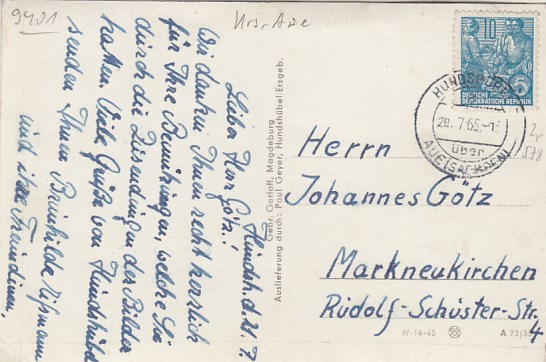 9401
Hundsh. d. 28. 7.
Lieber Herr Götz!
Wir danken Ihnen recht herzlich
für Ihre Bemühungen, welche Sie
durch die Zusendungen der Bilder
hatten. Viele Grüße von Hundshübel
senden Ihnen Brunhilde
und ihre Freundinnen.
Gebr. Garloff, Magdeburg
Auslieferung durch: Paul Geyer, Hundshübel Erzgeb.
10
5
DEUTSCHE
DEMOKRATISCHE REPUBLIK
HUNDSHÜBEL
28. 7. 65.-16
über
AUE (SACHSEN)
Herrn
Johannes Götz
Markneukirchen
Rudolf-Schuster-Str.
4
IV-14-45
A 73/55